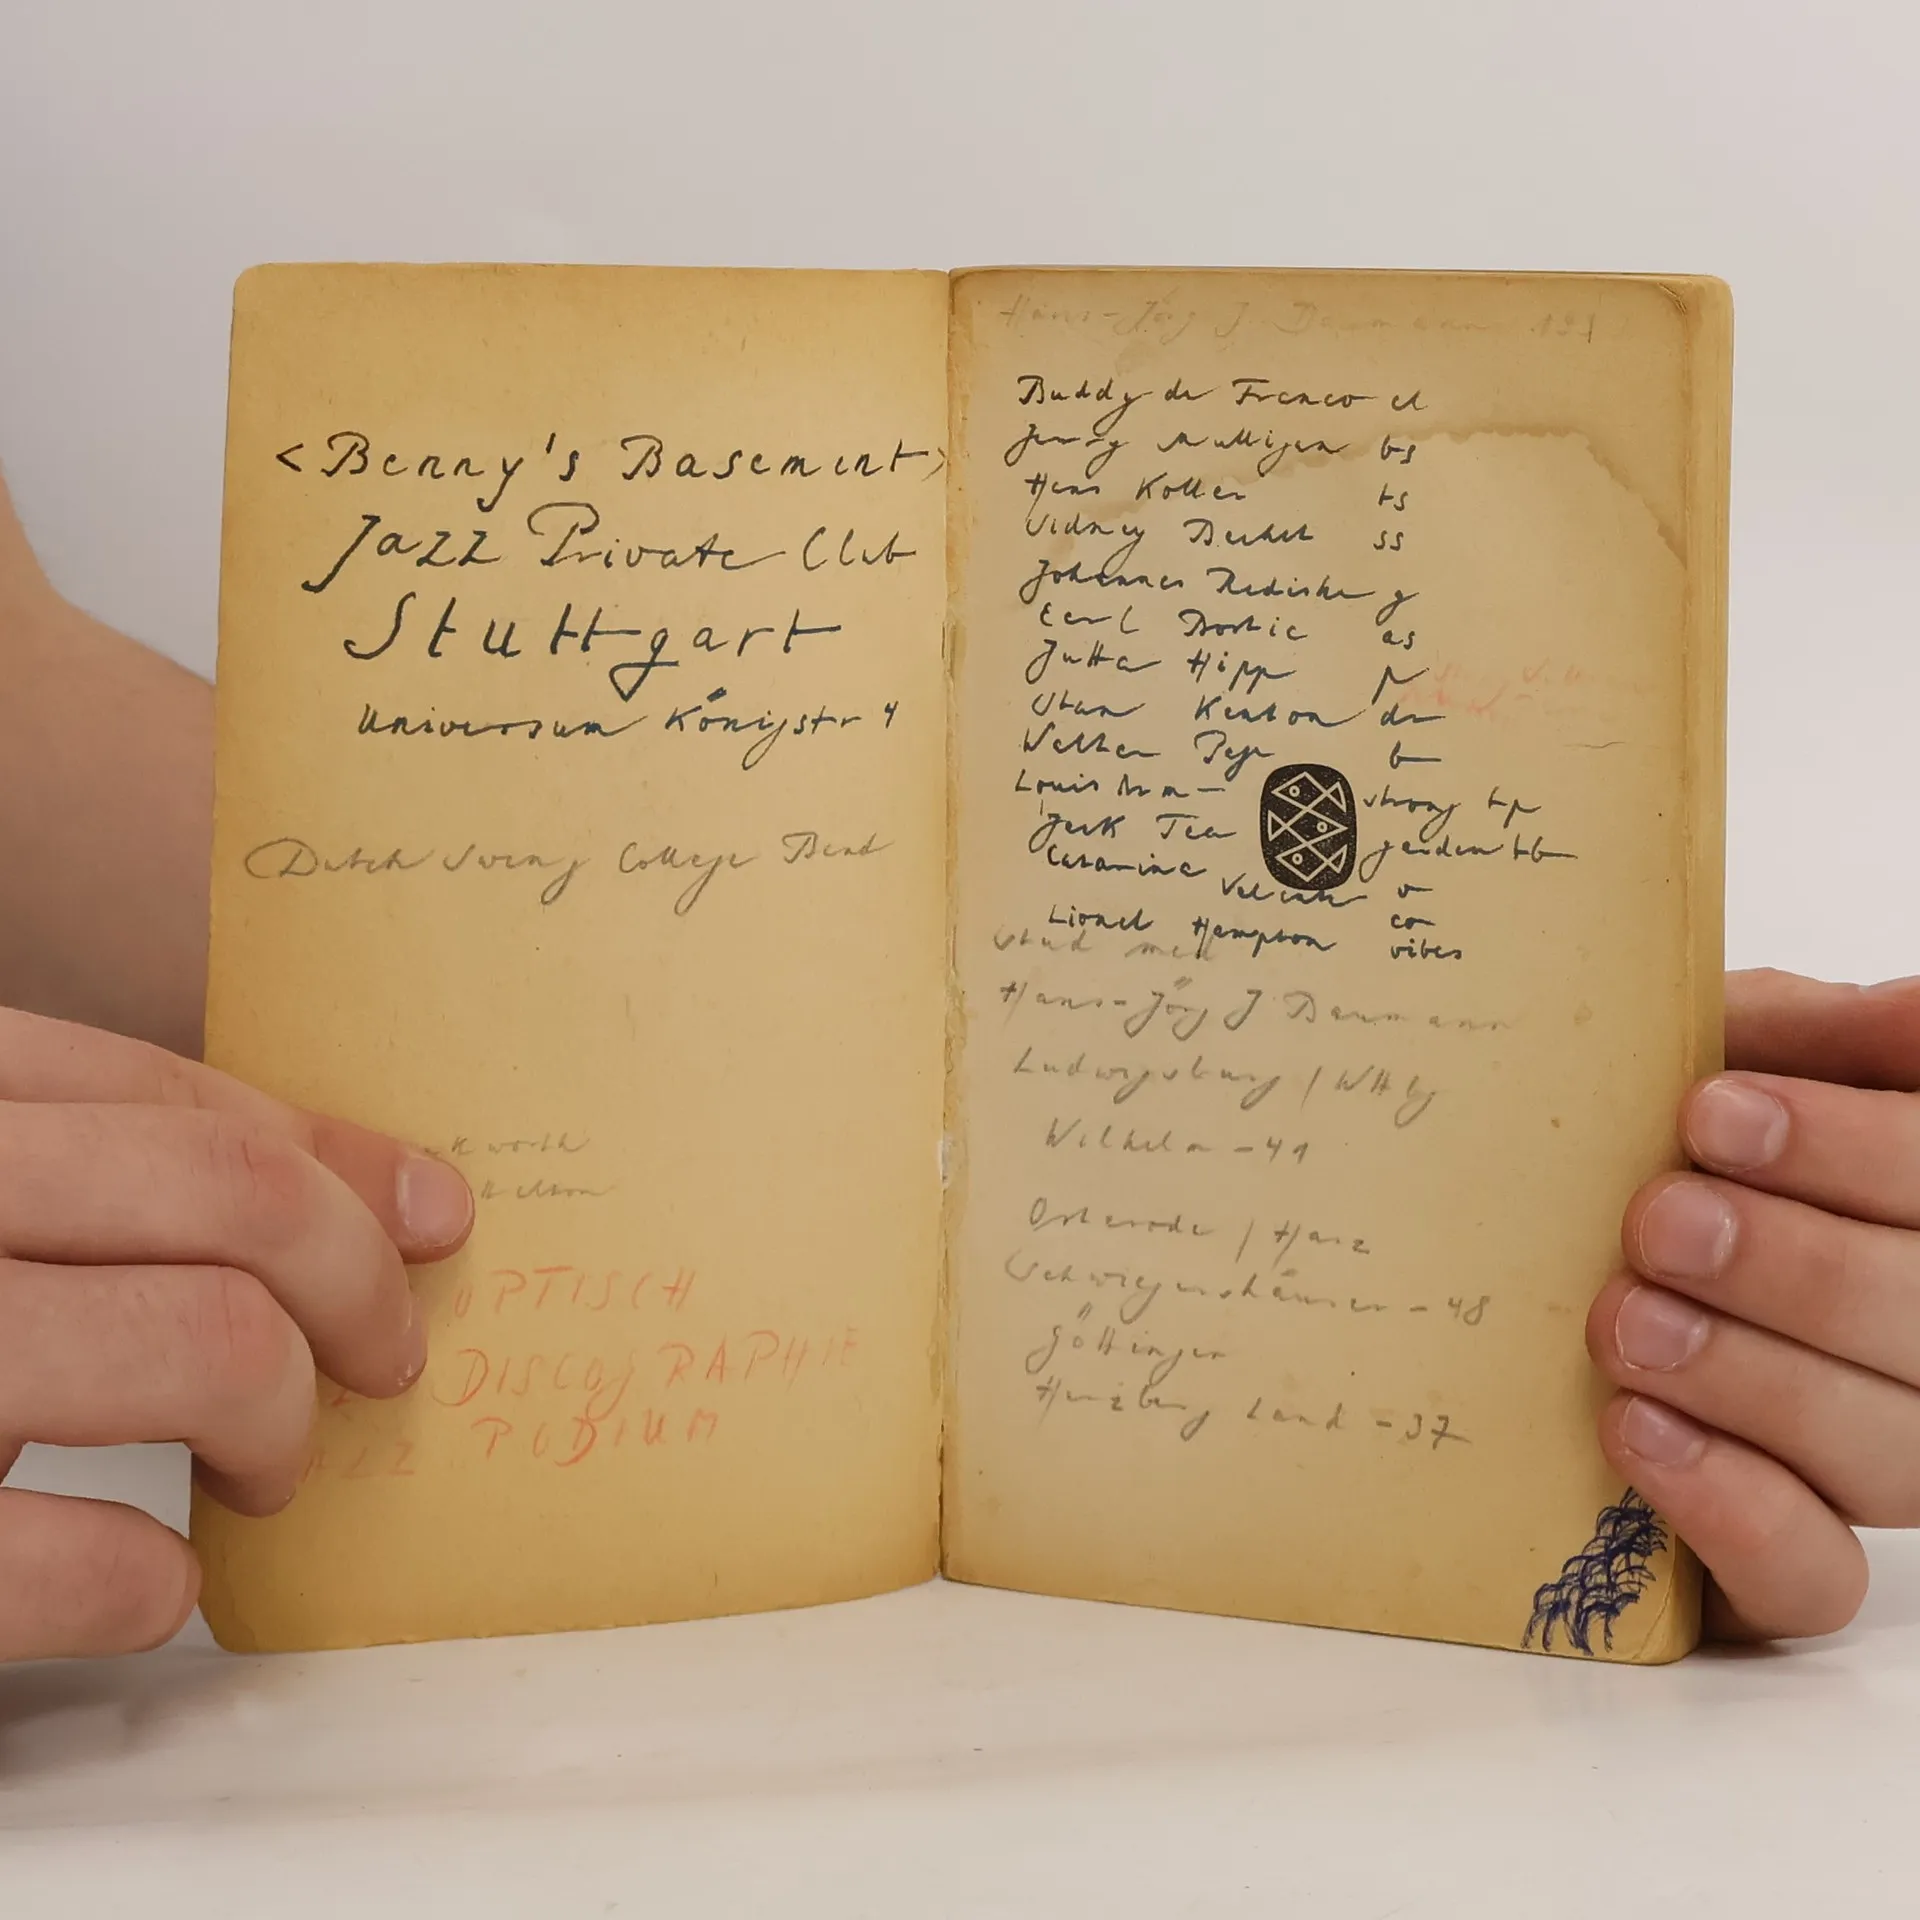 <Benny's Basement>
Jazz Private Club
Stuttgart
Universum Königstr 4
Dutch Swing College Band
worth
OPTISCH
DISCOGRAPHIE
PODIUM
Hans-Jörg J. Baumann
Buddy de Franco cl
Jerry Mulligan bs
Hans Koller ts
Sidney Bechet ss
Johannes Rediske g
Earl Bostic as
Jutta Hipp p
Stan Kenton dr
Walter Page b
Louis Arm- strong tp
Jack Tea garden tb
Catarina Valente v
Lionel Hampton vibes
co
stud med
Hans-Jörg J Baumann
Ludwigsburg / Wttbg
Wilhelm - 41
Osterode / Harz
Schwiegershäuser - 48
Göttingen
Herzberg Land - 37